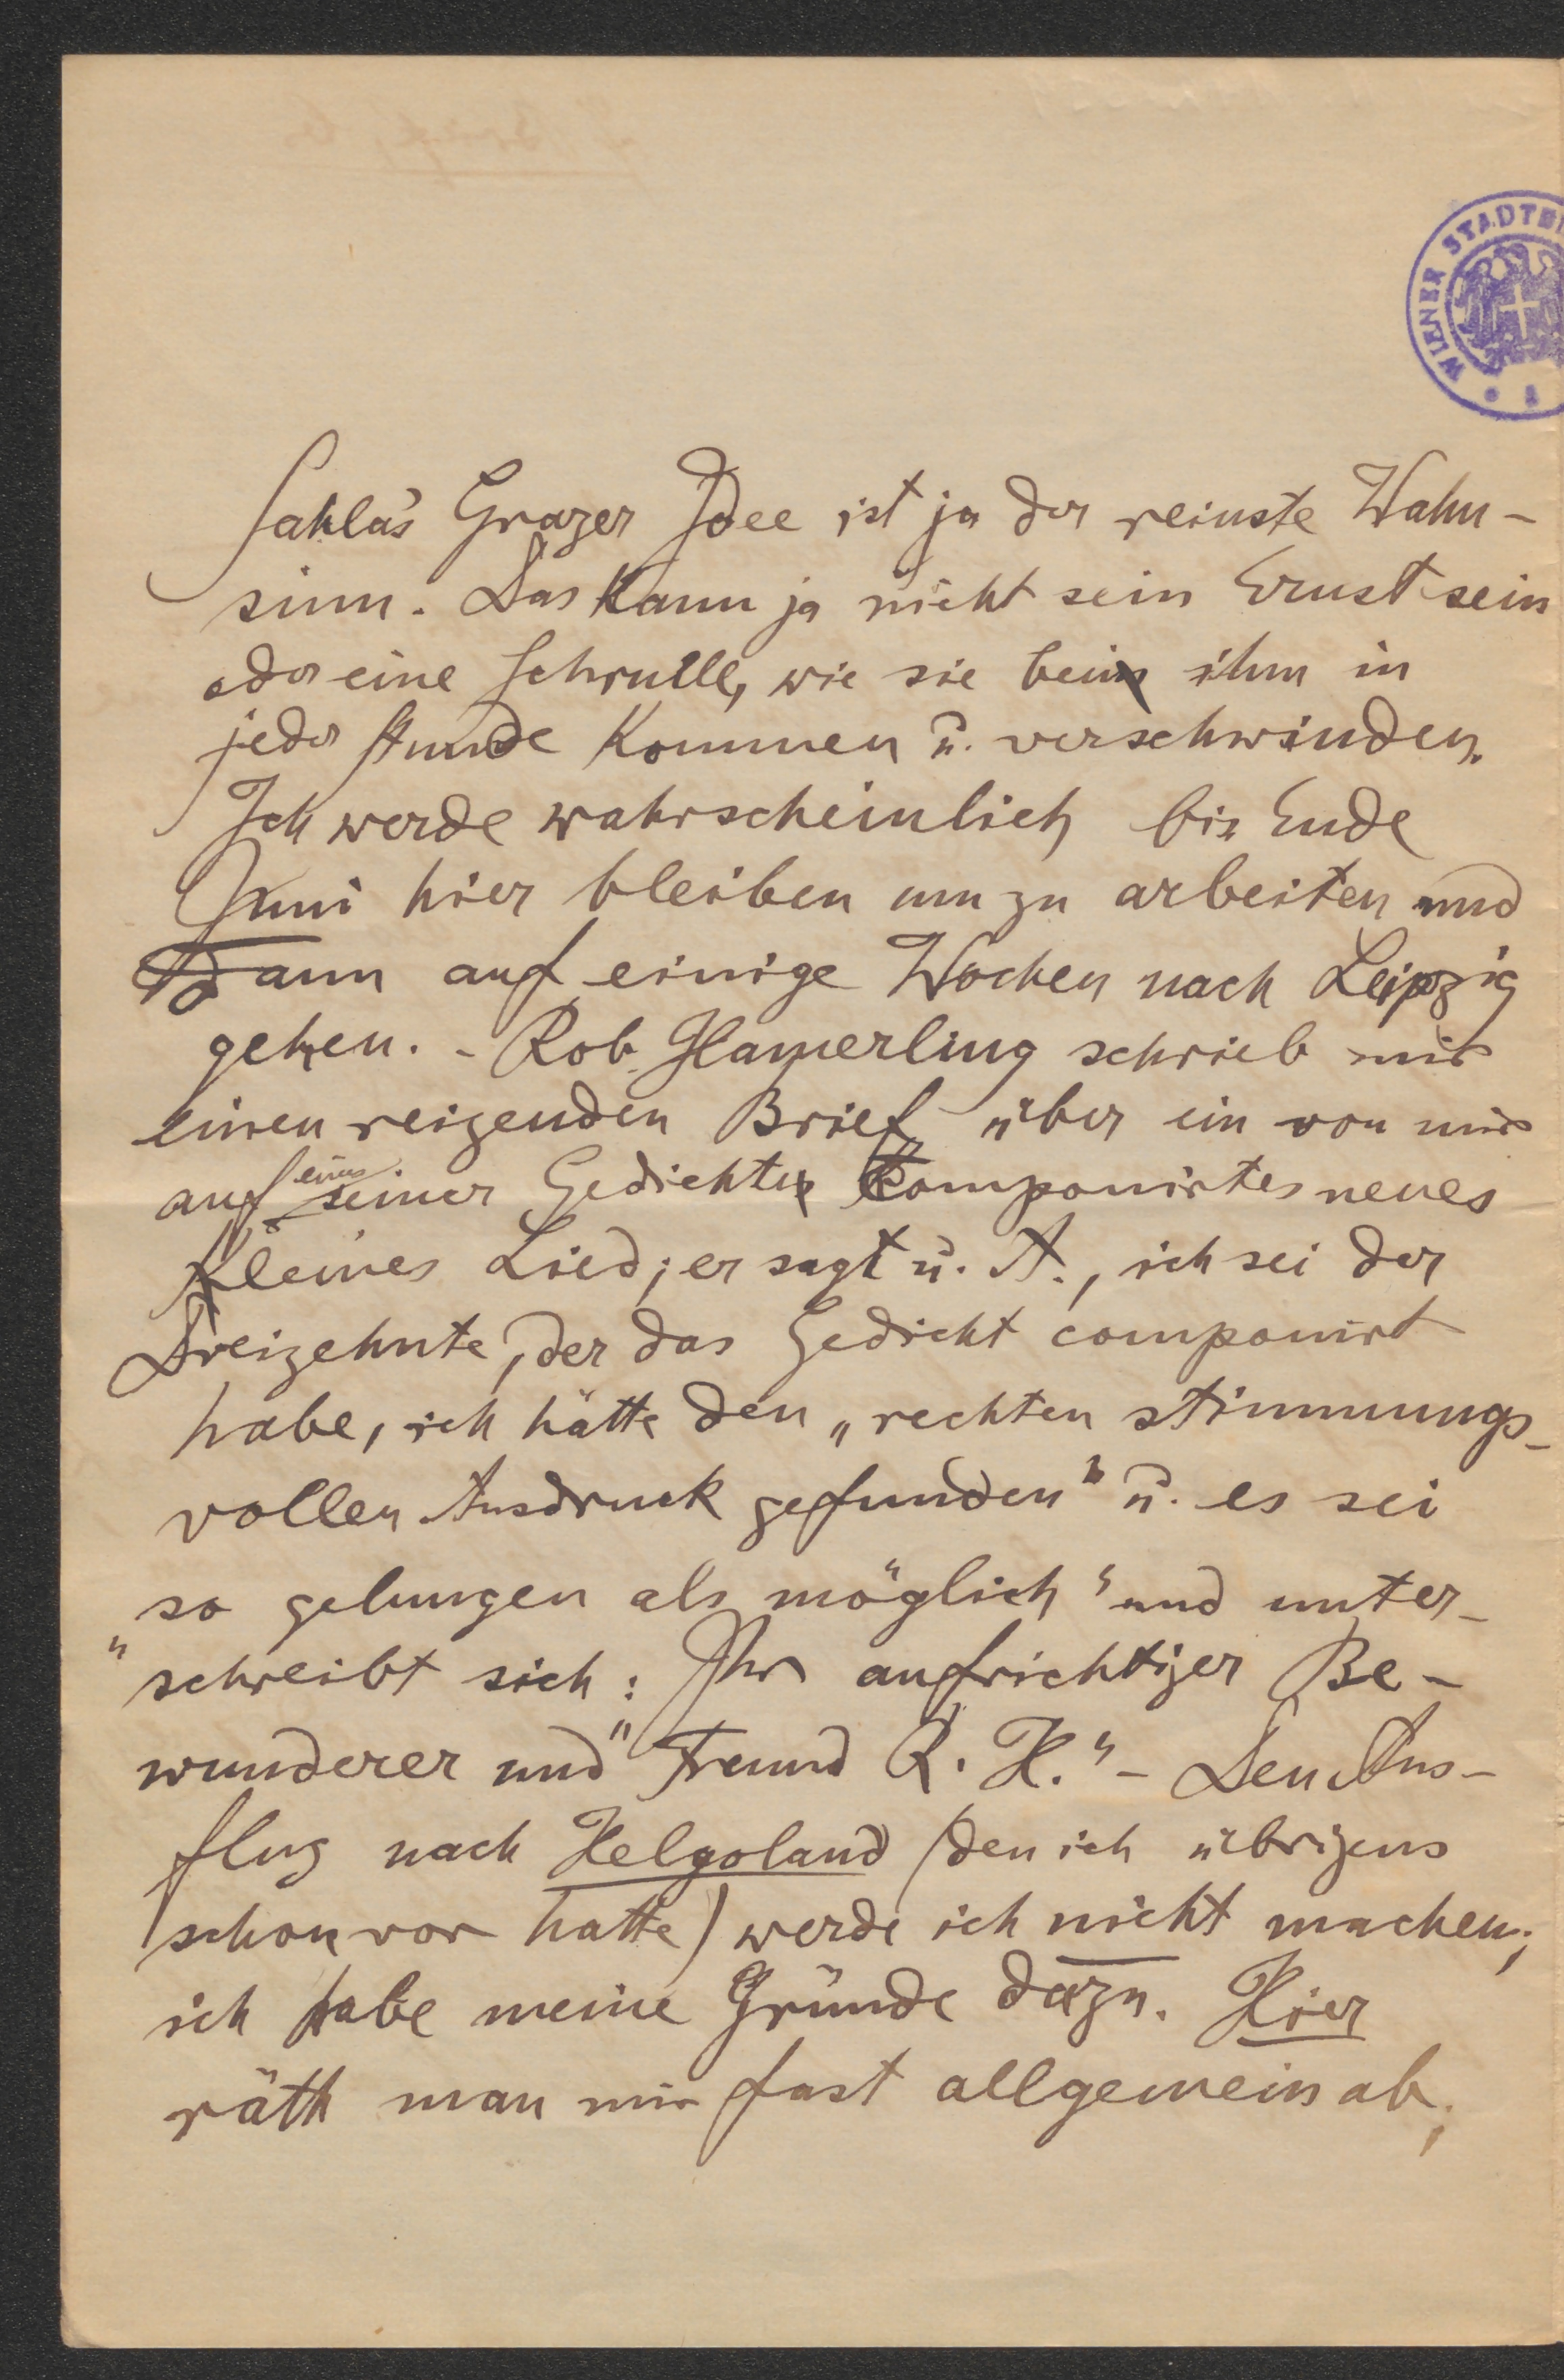 WIENER STADTBI
Sahla's Grazer Idee ist ja der reinste Wahn-
sinn. Das kann ja nicht sein Ernst sein
oder eine Schrulle, wie sie bei ihm in
jeder Stunde kommen u. verschwinden.
Ich werde wahrscheinlich bis Ende
Juni hier bleiben um zu arbeiten und
dann auf einige Wochen nach Leipzig
gehen. - Rob. Hamerling schrieb mir
einen reizenden Brief über ein von mir
auf eines seiner Gedichte componirtes neues
kleines Lied; er sagt u. A., ich sei der
Dreizehnte, der das Gedicht componirt
habe, ich hätte den „rechten stimmungs-
vollen Ausdruck gefunden" u. es sei
„so gelungen als möglich" und unter-
schreibt sich: „Ihr aufrichtiger Be-
wunderer und Freund R. H." - Den Aus-
flug nach Helgoland (den ich übrigens
schon vor hatte) werde ich nicht machen;
ich habe meine Gründe dazu. Hier
räth man mir fast allgemein ab;